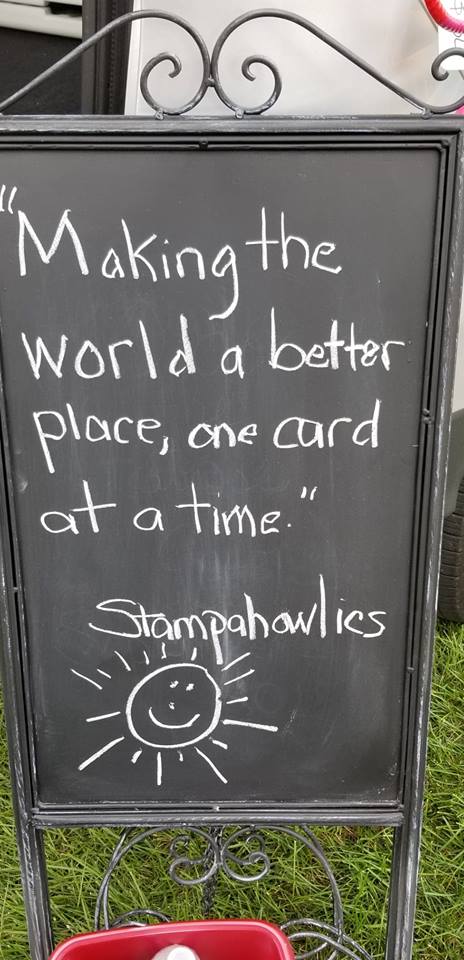 "Making the
world a better
place, one card
at a time."
Stampahowlics